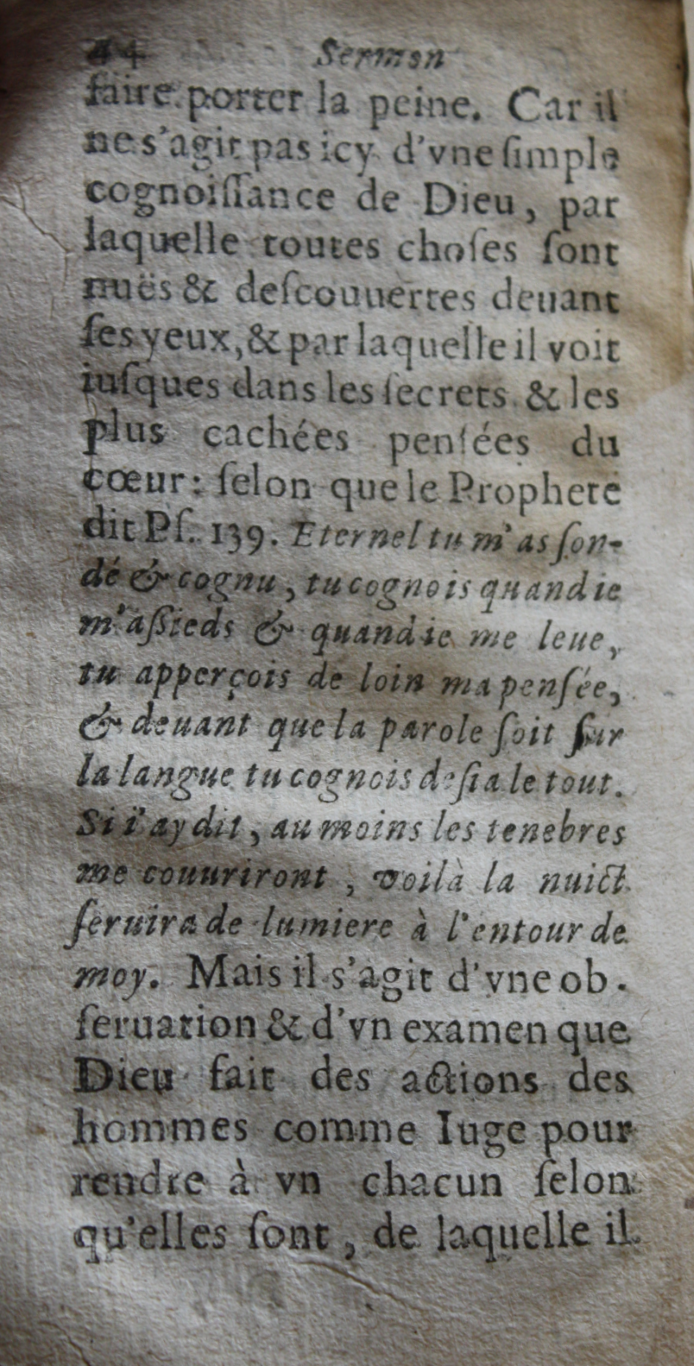 44 Sermon
faire porter la peine. Car il
ne s'agit pas icy d'vne ſimple
cognoiſſance de Dieu, par
laquelle toutes choſes ſont
nuës & deſcouuertes deuant
ſes yeux, & par laquelle il voit
iuſques dans les ſecrets & les
plus cachées penſées du
cœur: ſelon que le Prophete
dit Pſ. 139. Eternel tu m'as ſon-
dé & cognu, tu cognois quand ie
m'aſſieds & quand ie me leue,
tu apperçois de loin ma penſée,
& deuant que la parole ſoit ſur
la langue tu cognois deſia le tout.
Si i'ay dit, au moins les tenebres
me couuriront, voilà la nuict
ſeruira de lumiere à l'entour de
moy. Mais il s'agit d'vne ob-
ſeruation & d'vn examen que
Dieu fait des actions des
hommes comme Iuge pour
rendre à vn chacun ſelon
qu'elles ſont, de laquelle il